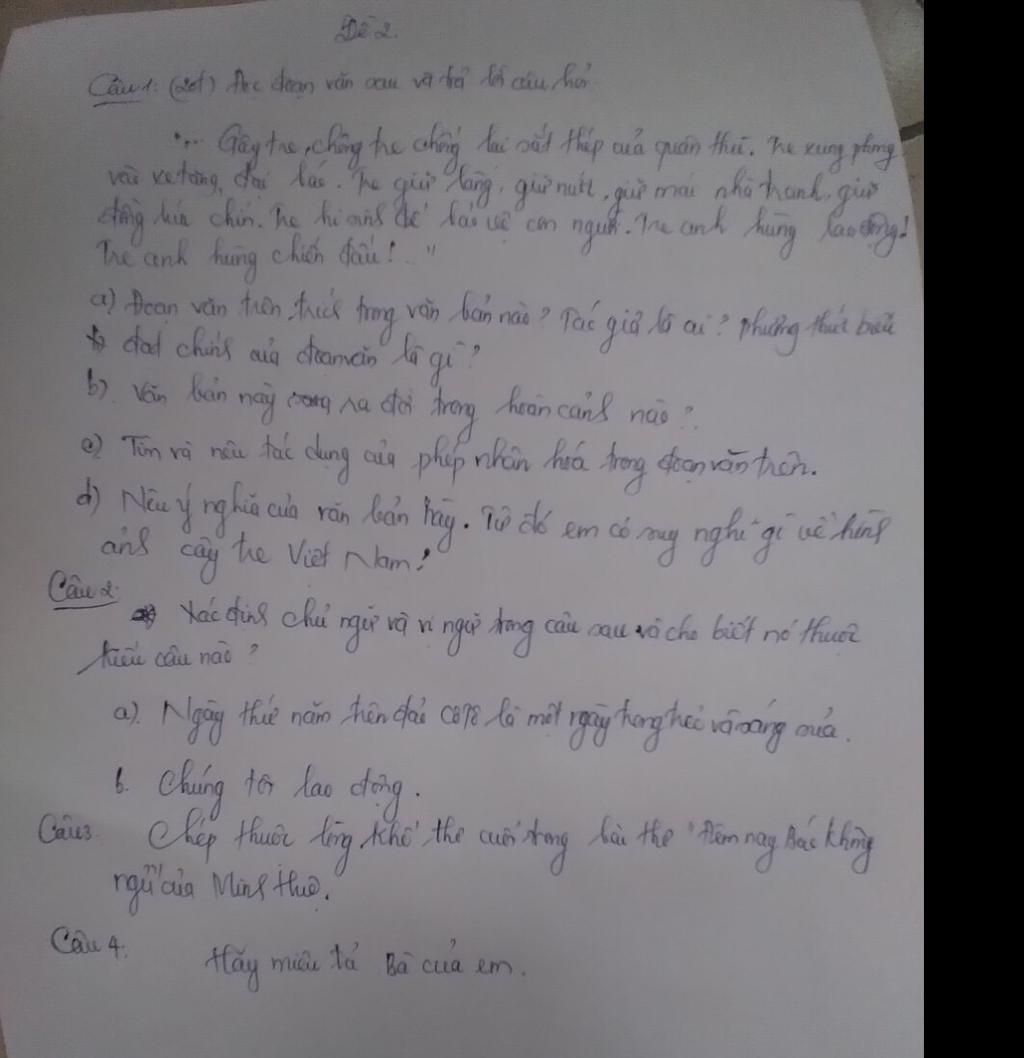 Đề 2.
Câu 1: (2đ) Đọc đoạn văn sau và trả lời câu hỏi
"... Gậy tre, chông tre chống lại sắt thép của quân thù. Tre xung phong
vào xe tăng, đại bác. Tre giữ làng, giữ nước, giữ mái nhà tranh, giữ
đồng lúa chín. Tre hi sinh để bảo vệ con người. Tre anh hùng lao động!
Tre anh hùng chiến đấu!..."
a) Đoạn văn trên trích trong văn bản nào? Tác giả là ai? Phương thức biểu
đạt chính của đoạn văn là gì?
b) Văn bản này ra đời trong hoàn cảnh nào?
c) Tìm và nêu tác dụng của phép nhân hoá trong đoạn văn trên.
d) Nêu ý nghĩa của văn bản này. Từ đó em có suy nghĩ gì về hình
ảnh cây tre Việt Nam!
Câu 2:
Xác định chủ ngữ và vị ngữ trong câu sau và cho biết nó thuộc
kiểu câu nào?
a) Ngày thứ năm trên đảo Cô Tô là một ngày trong trẻo và sáng sủa.
b. Chúng tôi lao động.
Câu 3. Chép thuộc lòng khổ thơ cuối trong bài thơ "Đêm nay Bác không
ngủ" của Minh Huệ.
Câu 4. Hãy miêu tả Bà của em.